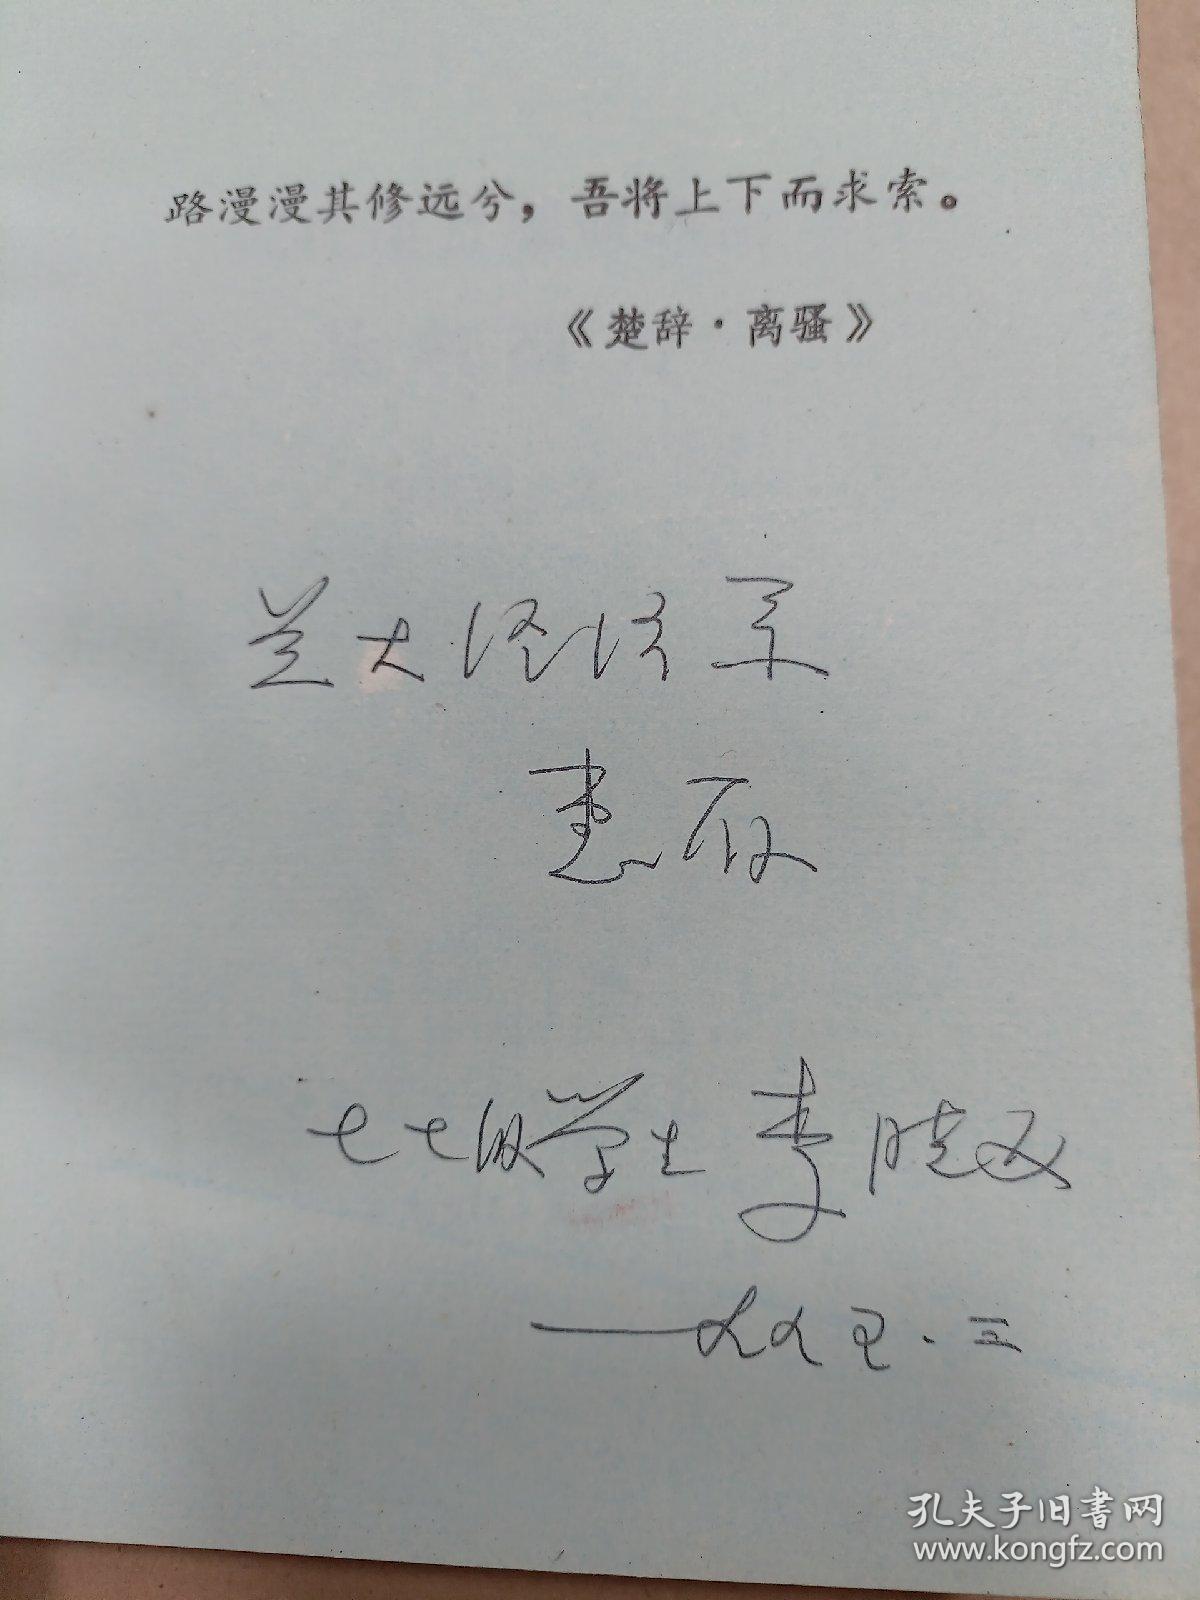 路漫漫其修远兮，吾将上下而求索。
《楚辞·离骚》
兰大经济系
惠存
七七级学生 李晓西
一九九五.三
孔夫子旧书网
www.kongfz.com